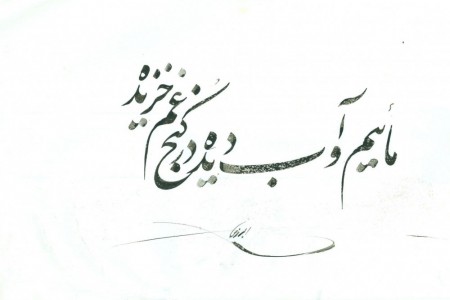 مائیم و آب دیده در کنج غم خزیده